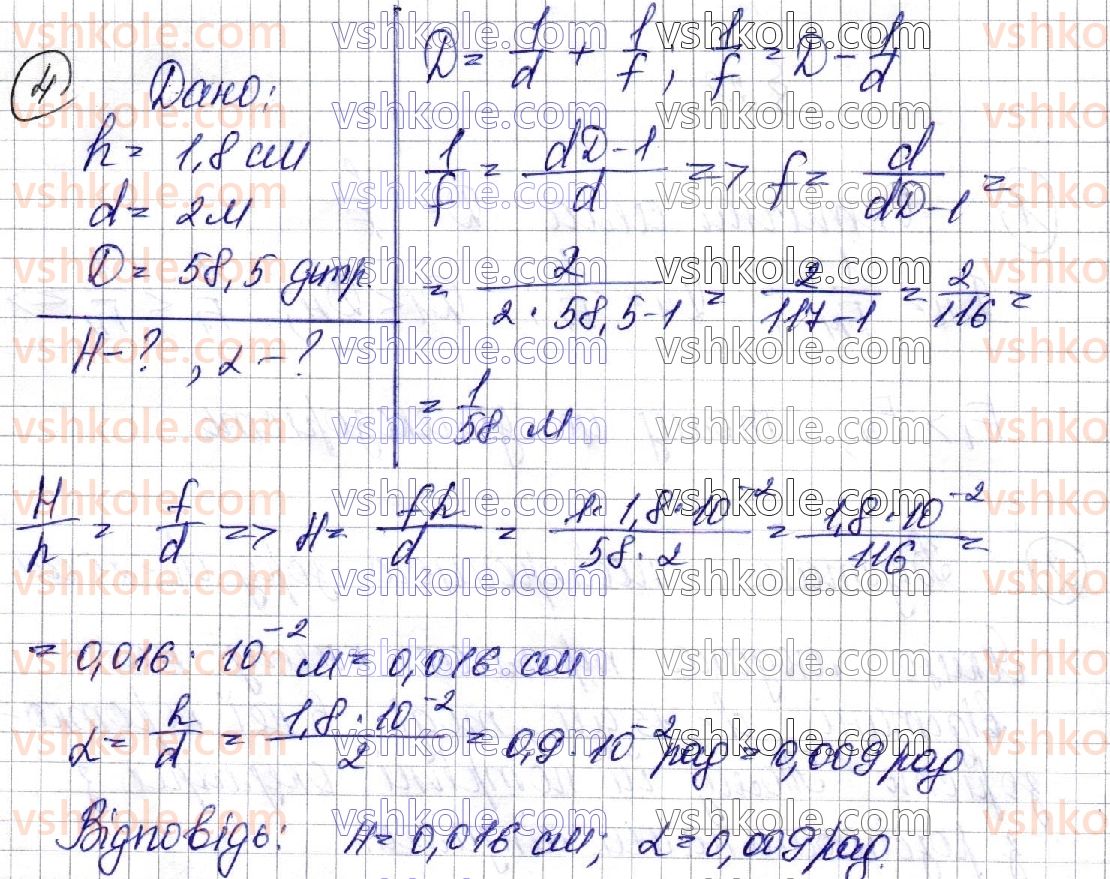 4 Дано:
h = 1,8 см
d = 2 м
D = 58,5 дптр.
H - ?, α - ?
D = 1/d + 1/f, 1/f = D - 1/d
1/f = (dD-1)/d => f = d/(dD-1) =
= 2/(2·58,5-1) = 2/(117-1) = 2/116 =
= 1/58 м
H/h = f/d => H = fh/d = (1·1,8·10⁻²)/(58·2) = (1,8·10⁻²)/116 =
= 0,016·10⁻² м = 0,016 см
α = h/d = (1,8·10⁻²)/2 = 0,9·10⁻² рад = 0,009 рад
Відповідь: H = 0,016 см; α = 0,009 рад.
vshkole.com